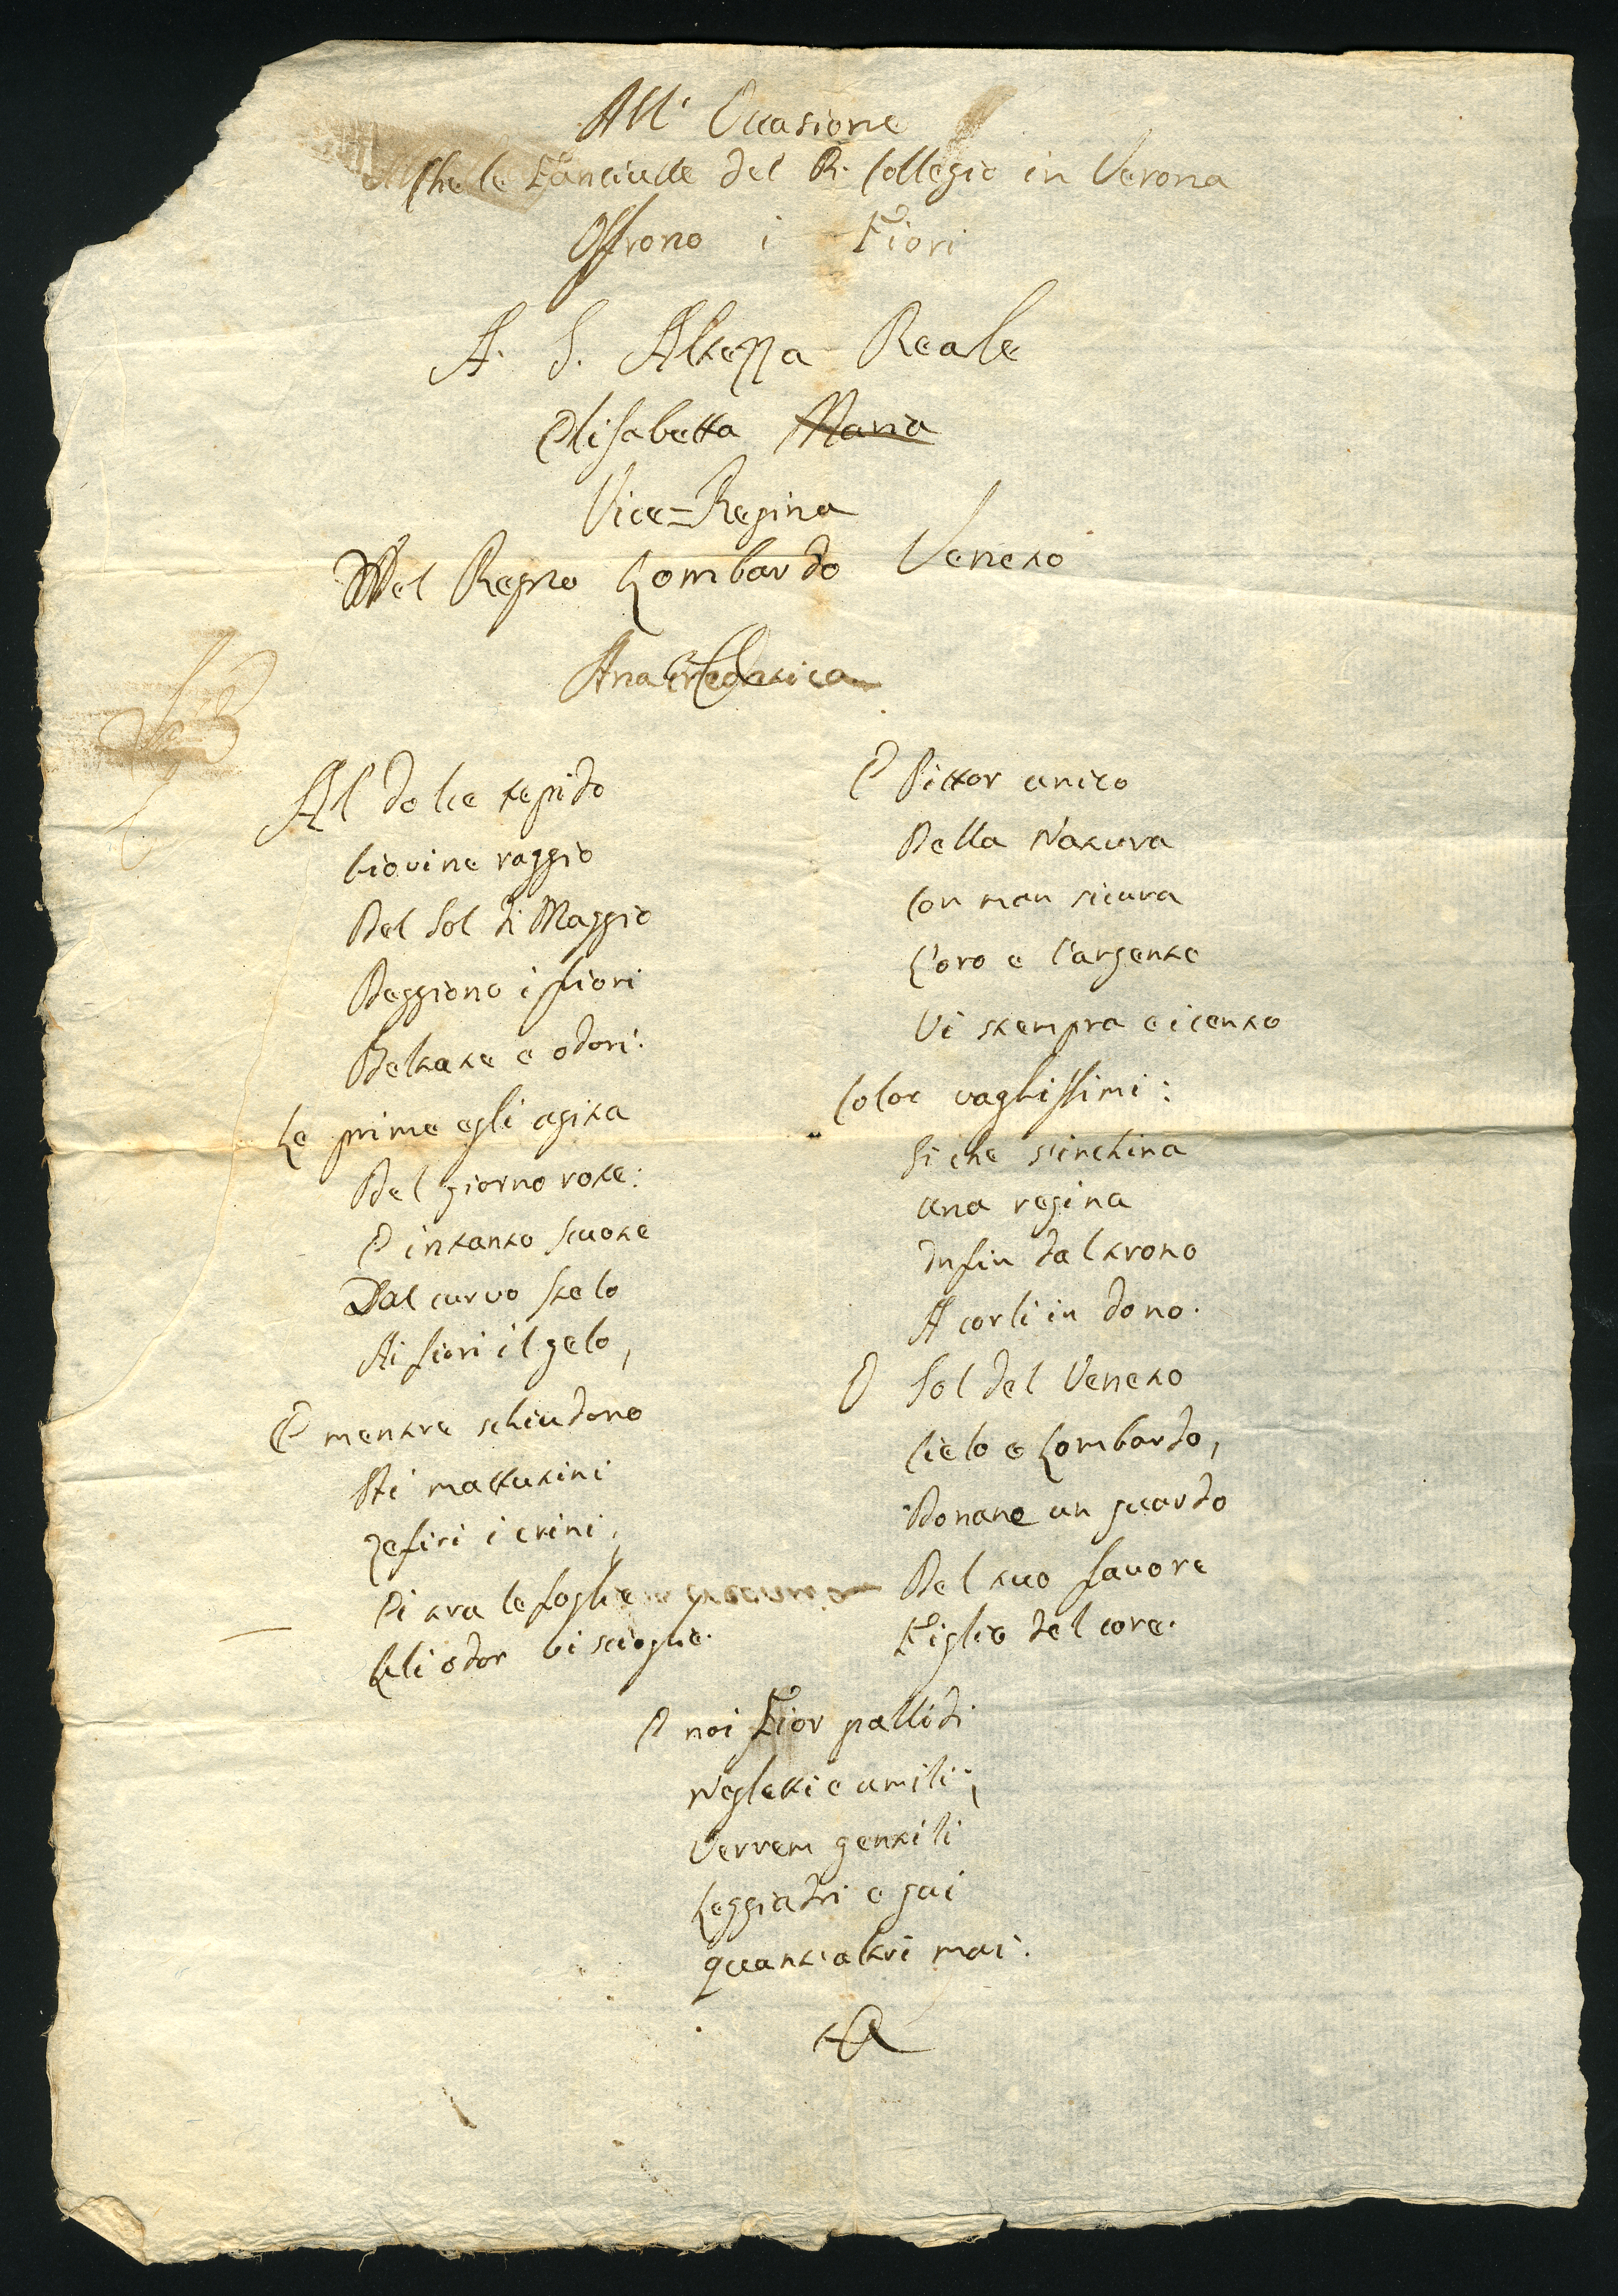 All' Occasione
Che le Fanciulle del R. Collegio in Verona
Offrono i Fiori
A. S. Altezza Reale
Elisabetta Maria
Vice=Regina
Del Regno Lombardo Veneto
Anacreontica
Al dolce tepido
Giovine raggio
Del Sol di Maggio
Veggiono i fiori
Beltate e odori:
Le prime egli agita
Del giorno rote:
E intanto scuote
Dal curvo stelo
Ai fiori il gelo,
E mentre schiudono
Ai mattutini
Zefiri i crini,
Ei tra le foglie
Gli odor vi scioglie.
E Pittor unico
Della Natura
Con man sicura
L'oro e l'argento
Vi stempra e i cento
Color vaghissimi:
Si che s'inchina
una regina
Infin dal trono
A corli in dono.
O Sol del Veneto
Cielo e Lombardo,
Donane un guardo
Del tuo favore
Figlio del core.
E noi Fior pallidi
Negletti e umili,
Verrem gentili
Leggiadri e gai
quant'altri mai.